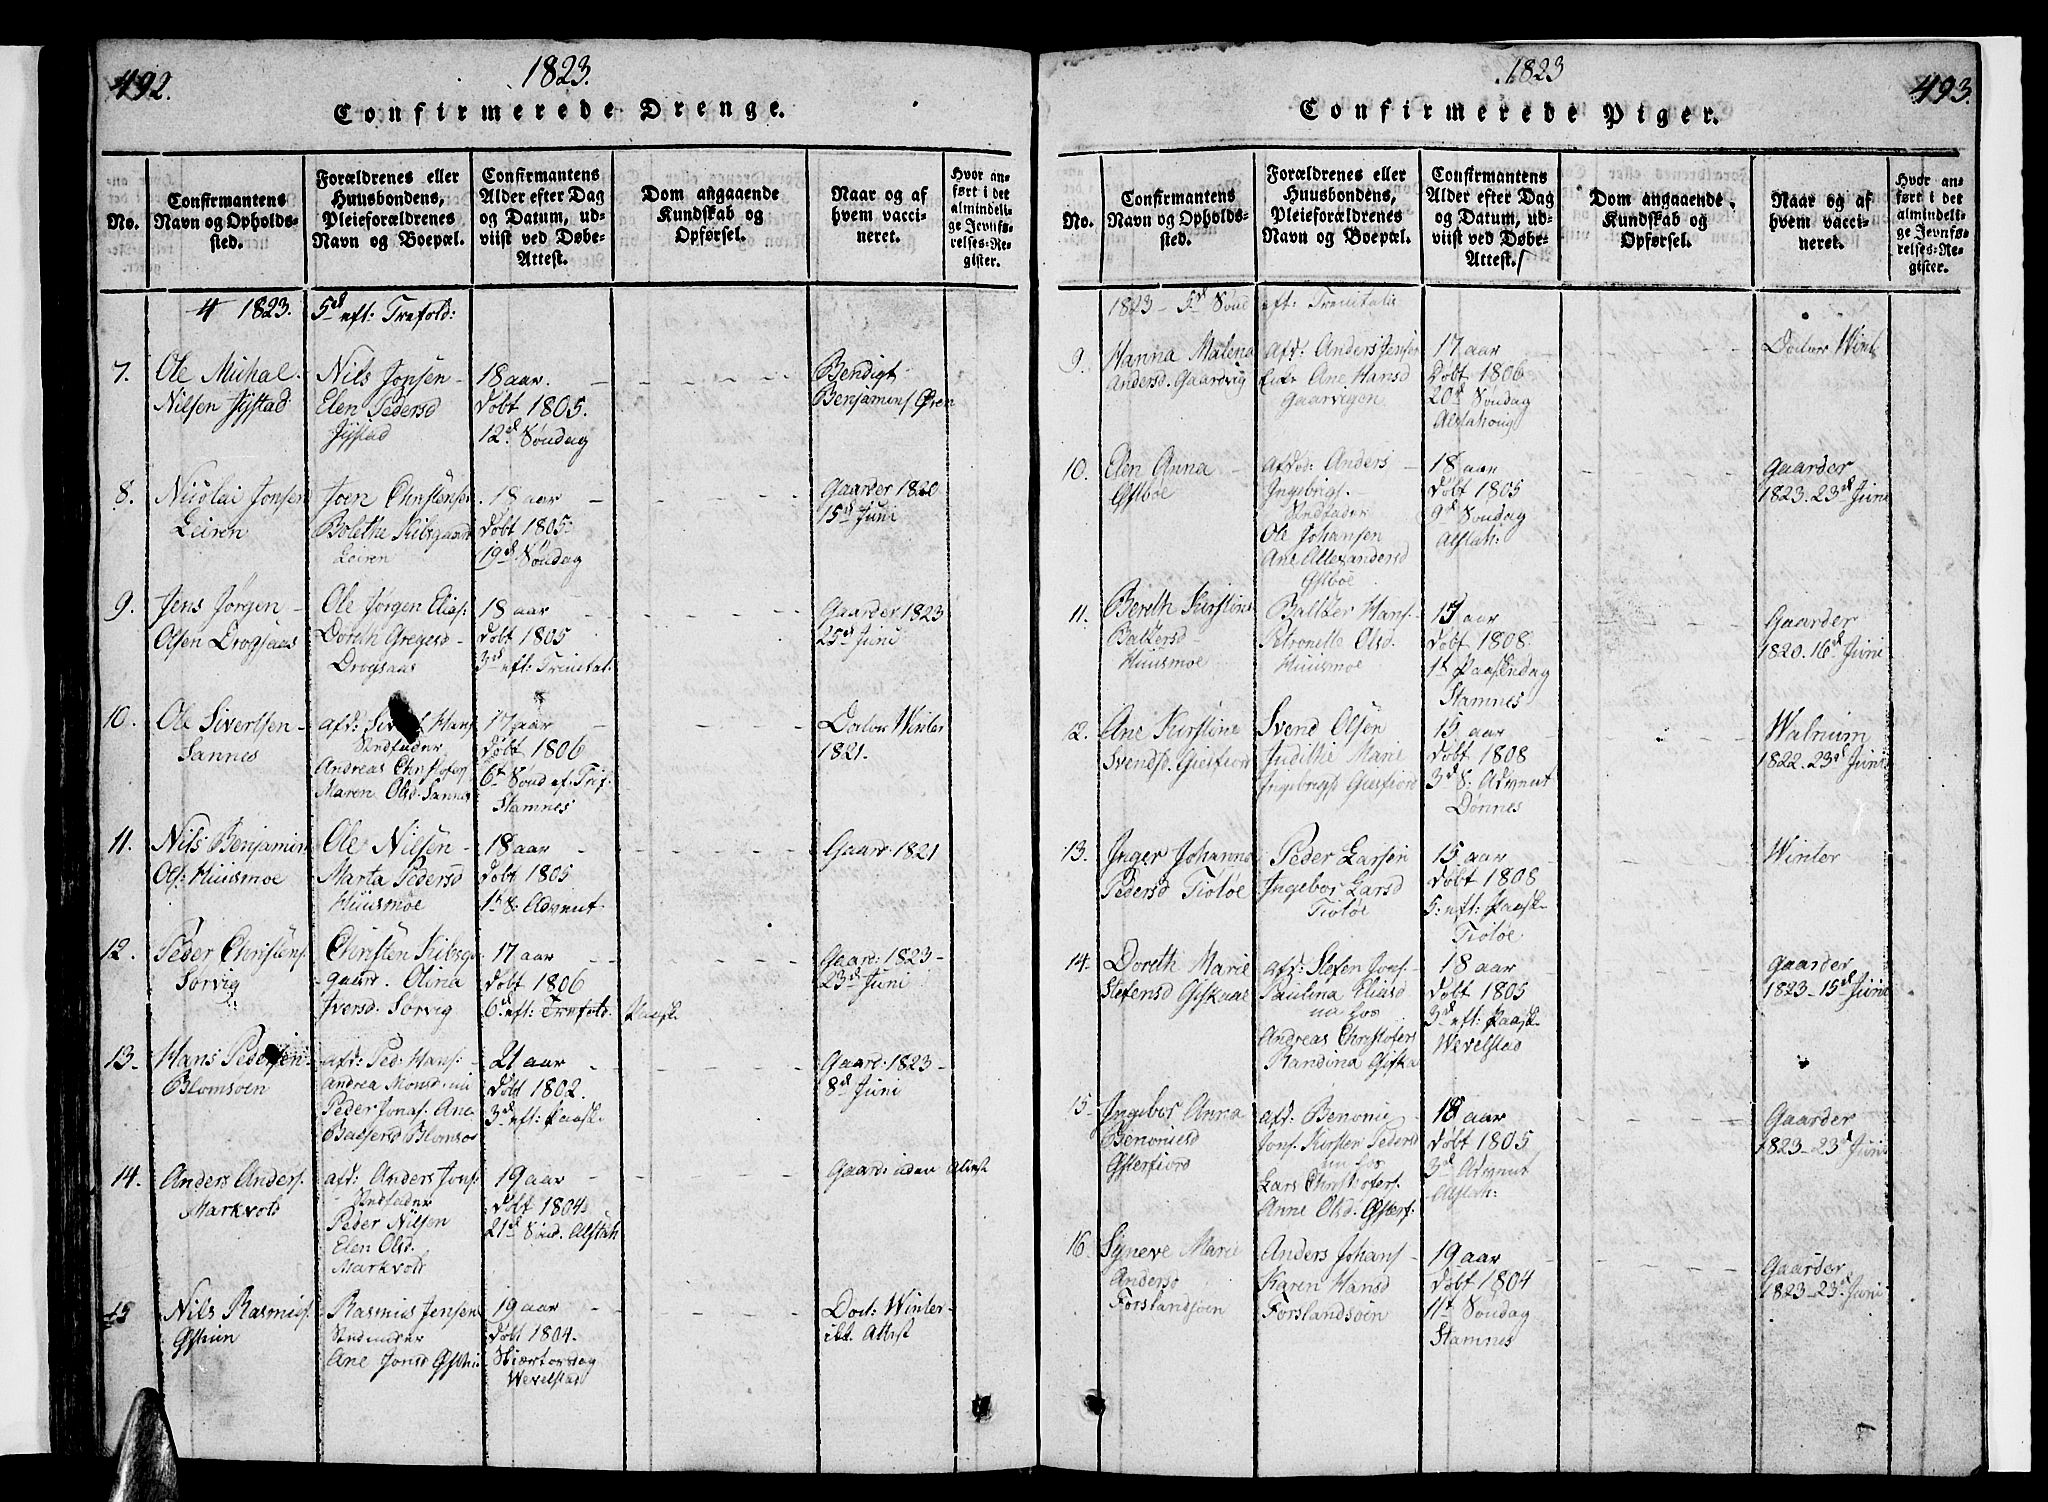 492.
1823.
Confirmerede Drenge.
No.
Confirmantens
Navn og Opholds-
sted.
Forældrenes eller
Huusbondens,
Pleieforældrenes
Navn og Boepæl.
Confirmantens
Alder efter Dag
og Datum, ud-
viist ved Døbe-
Attest.
Dom angaaende
Kundskab og
Opførsel.
Naar og af
hvem vacci-
neret.
Hvor an-
ført i det
almindeli-
ge Jevnfø-
relses-Re-
gister.
4 1823.
5d eft: Trefold:
7.
Ole Michal
Nilsen
Nils Jonsen
Elen Pedersd
18 aar.
Døbt 1805.
12d Søndag
Bendigt
Benjamins Øren
8.
Nicolai Jonsen
Leiren
Joen Christensen
Bolethe
Leiren
18 aar
Døbt 1805.
19d Søndag
Gaarder 1820
15d Juni
9.
Jens Jørgen
Olsen Drogsaas
Ole Jørgen Elias:
Doreth Gregersd
Drogsaas
18 aar
Døbt 1805
3d eft: Trinitat.
Gaarder 1823
25d Juni
10.
Ole Sivertsen
Sannes
afd: Sivert Hans
Stedfader
Andreas Christofer
Maren Olsd Sannes
17 aar
Døbt 1806
6t Sønd ef. Trif.
Stamnes
Doctor Winter
1821.
11.
Nils Benjamin
Ols: Huusmoe
Ole Nilsen
Marta Pedersd
Huusmoe
18 aar
Døbt 1805
1t S: Advent
Gaard: 1821
12.
Peder Christens:
Sørvig
Christen
gaard. Olina
Iversd. Sørvig
17 aar
Døbt 1806
6d eft: Paaske
Gaard: 1823
23d Juni
13.
Hans Pedersen
Blomsøen
afd: Ped: Hans:
Andrea Monsd nu
Peder Jonas: Ane
Baltsersd Blomsøe
21 aar
Døbt 1802.
3d eft: Paaske
Gaard: 1823
8d Juni
14.
Anders Anders.
Markvold
afd: Anders Jons:
Stedfader
Peder Nilsen
Elen Olsd.
Markvold
19 aar
Døbt 1804
21d Sønd. Alstah
Gaard: uden Attest
15
Nils Rasmus.
Rasmus Jensen
Ane Jonsd
19 aar
Døbt 1804.
Skiærtorsdag
Wevelstad
Doct: Winter
Attest
1823
493.
Confirmerede Piger.
No.
Confirmantens
Navn og Opholds-
sted.
Forældrenes eller
Huusbondens,
Pleieforældrenes
Navn og Boepæl.
Confirmantens
Alder efter Dag
og Datum, ud-
viist ved Døbe-
Attest.
Dom angaaende
Kundskab og
Opførsel.
Naar og af
hvem vacci-
neret.
Hvor an-
ført i det
almindeli-
ge Jevnfø-
relses-Re-
gister.
1823 - 5d Sønd
eft: Trinitatis
9.
Hanna Malena
Andersd. Gaardvig
afd: Anders Jensen
Enke Ane Hansd
Gaarvigen
17 aar
Døbt 1806
20d Søndag
Alstahoug
Doctor Wint
10.
Elen Anna
Østbøe
afdød: Anders
Ingebrigt.
Stedfader
Ole Johansen
Ane Allexandersd
Østbøe
18 aar
Døbt 1805
9d Søndag
Alstah:
Gaarder
1823. 23d Juni
11.
Bereth Kirstine
Baltzersd
Huusmoe
Baltzer Hans.
Petronelle Olsd.
Huusmoe
15 aar
Døbt 1808.
1t Paaskedag
Stamnes
Gaarder
1820. 16d Juni
12.
Ane Kirstine
Svendsd. Giesfiord
Svend Olsen
Judithe Marie
Ingebrigtsd Giesfiord
15 aar
Døbt 1808
3d S: Advent
Dønnes
Walnum
1822. 23d Juni
13.
Inger Johanna
Pedersd Tiøtøe
Peder Larsen
Ingebor Larsd
Tiøtøe
15 aar
Døbt 1808
5: eft: Paaske
Tiøtøe
Winter
14.
Doreth Marie
Stefensd
afd: Stefen Jons.
Paulina Eliasd
nu hos
Andreas Christofers
Randina
18 aar
Døbt 1805
3d eft: Paaske
Wevelstad
Gaarder
1823 - 15d Juni
15.
Ingebor Anna
Benoniesd
Østerfiord
afd: Benonie
Jons. Kirsten Pedersd
nu hos
Lars Christofers.
Anne Olsd. Østerf.
18 aar
Døbt 1805
3d Advent
Alstah:
Gaarder
1823 - 23d Juni
16.
Synneve Marie
Andersd
Forslandsøen
Anders Johans
Karen Hansd
Forslandsøen
19 aar
Døbt 1804
11t Søndag
Stamnes
Gaarder
1823 - 23d Juni